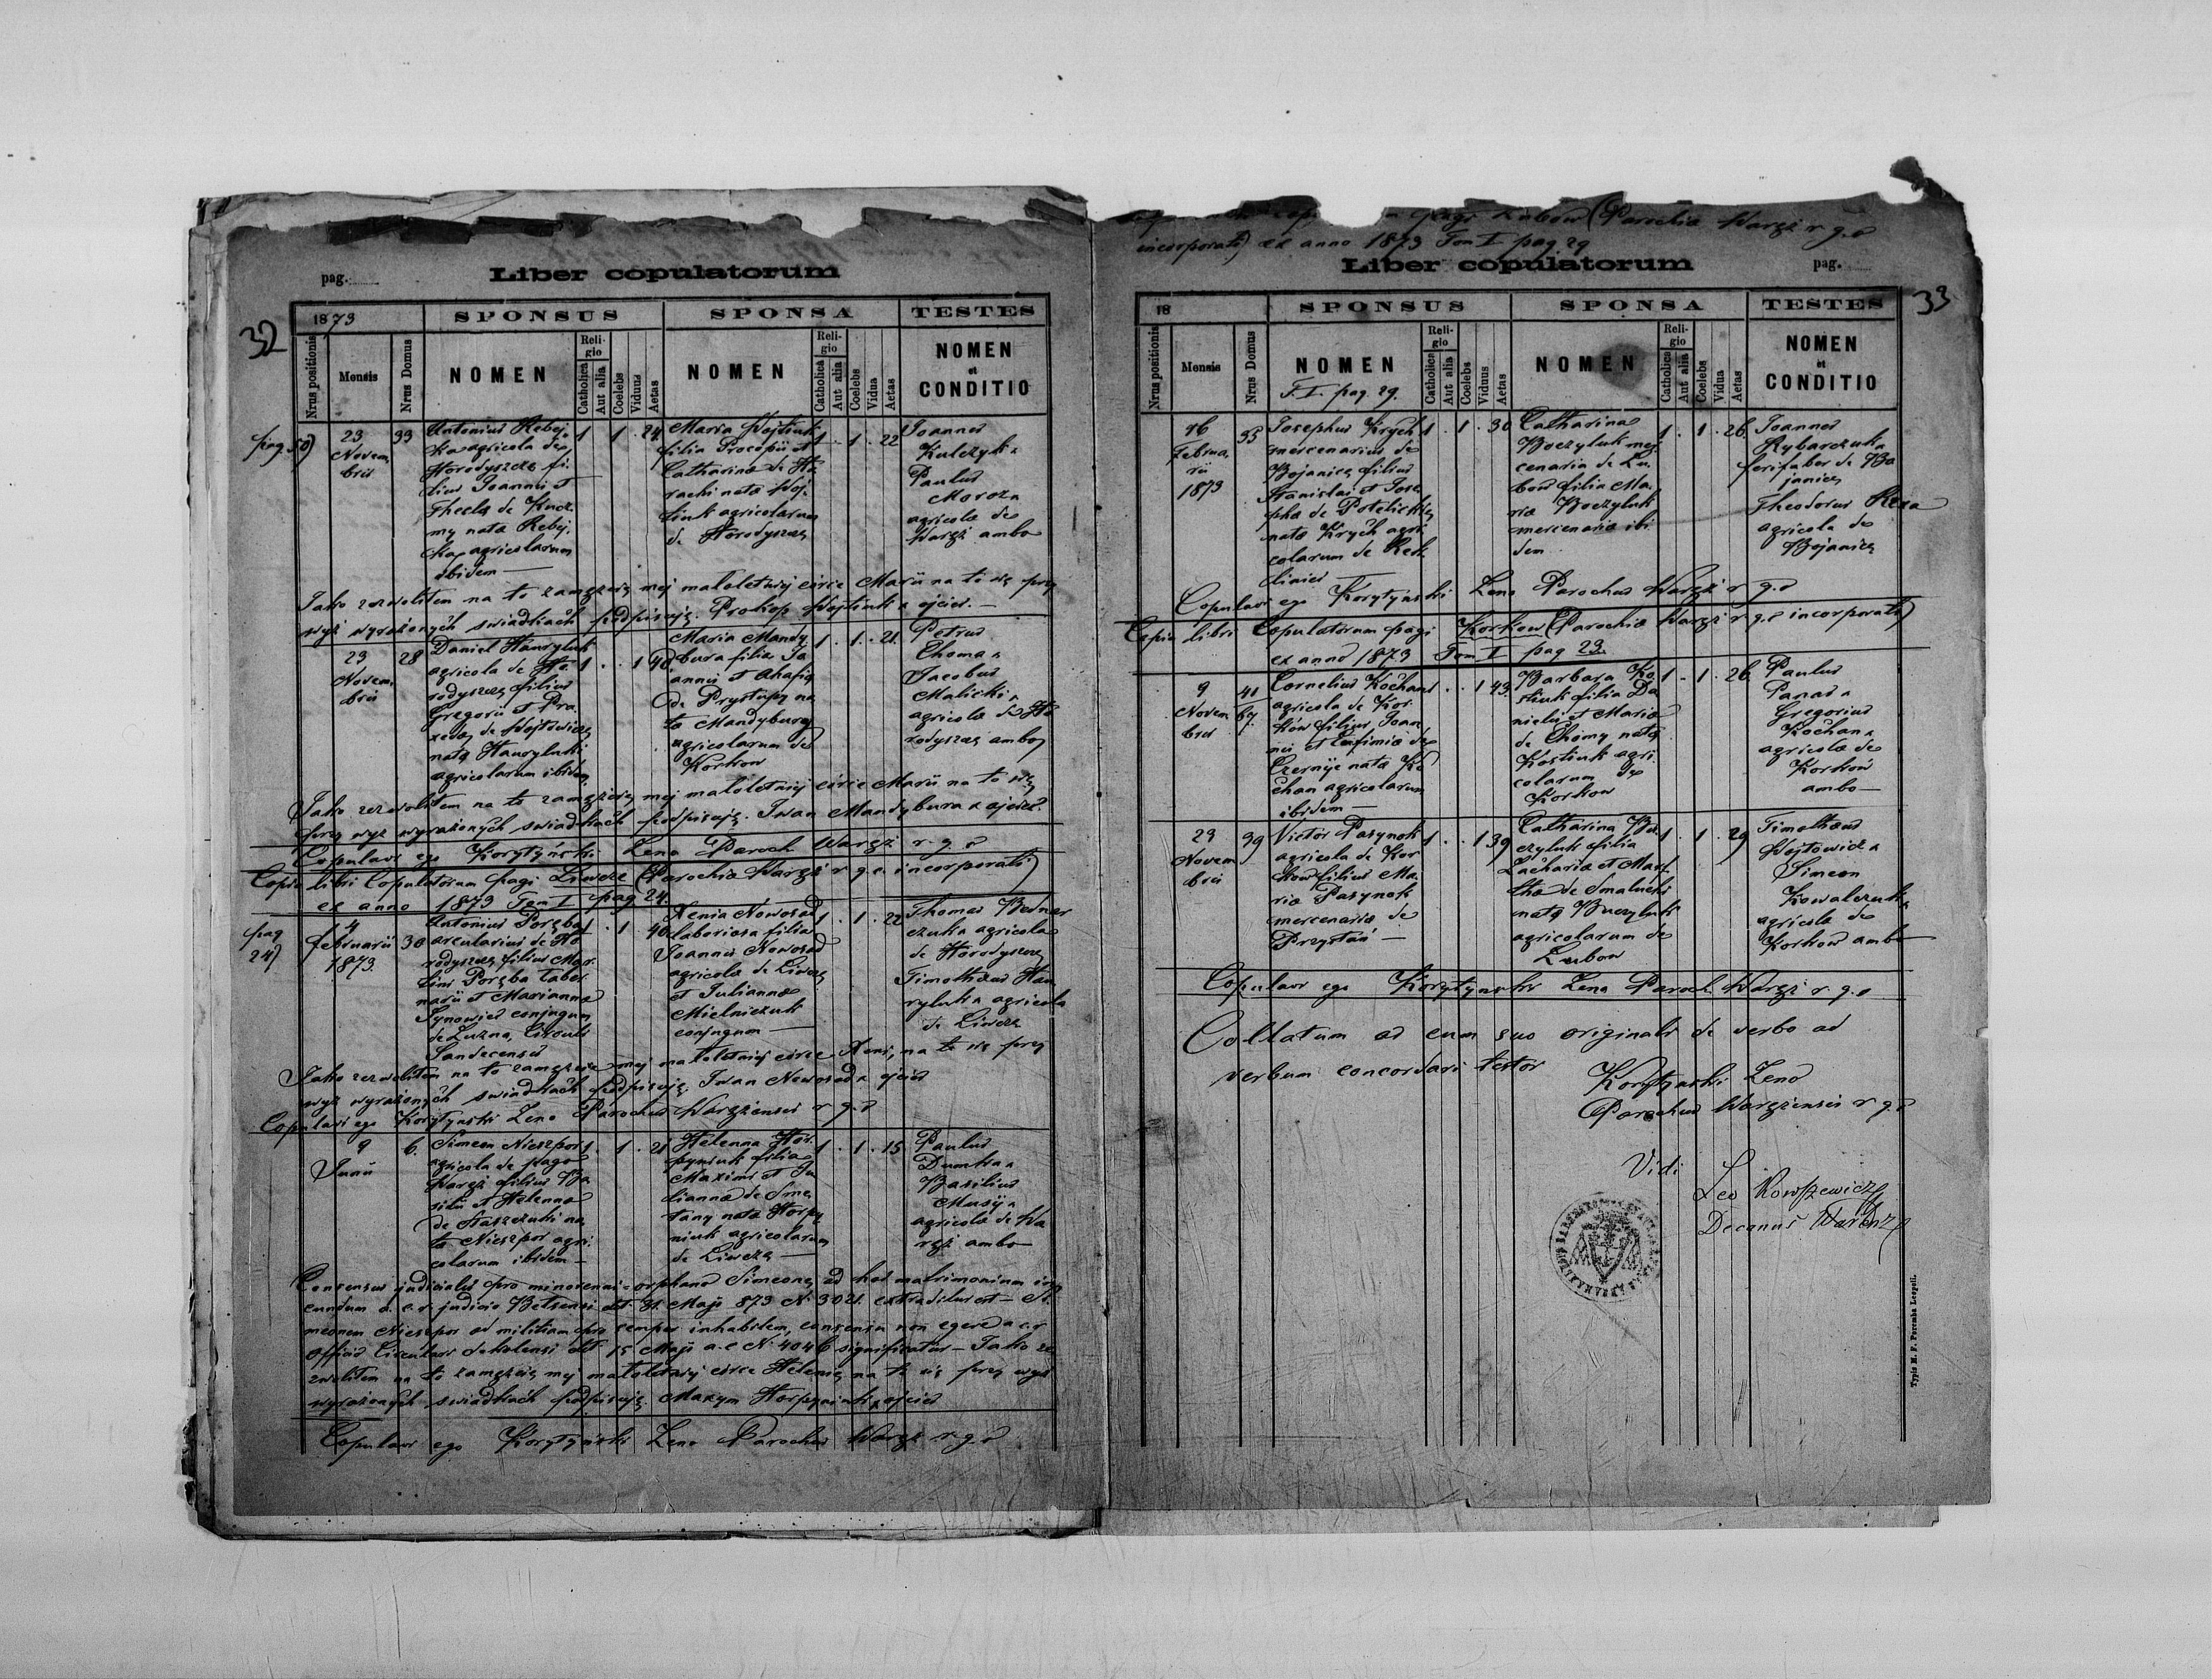 pag.
Liber copulatorum
32
1873
SPONSUS
SPONSA
TESTES
Nrus positionis
Mensis
Nrus Domus
NOMEN
Religio
Catholica
Aut alia
Coelebs
Viduus
Aetas
NOMEN
Religio
Catholica
Aut alia
Coelebs
Vidua
Aetas
NOMEN
et
CONDITIO
23
Novem
bris
33
Antonius Rebej
ka agricola de
Horodyszcze fi
lius Joannis et
Thecla de Kucz
my nata Rebej
ka agricolarum
ibidem
1 1 24
Maria Wojtiuk
filia Procopii et
Catharina de Ho
rachi nata Woj
tiuk agricolarum
de Horodyszcze
1 1 22
Joannes
Kulczyk
Paulus
Moroz
agricola de
Waręż ambo
Jako zezwoliłem na to zamęzcie mej małoletniej córce Marii na to się przy
wyż wyrażonych świadkach podpisuję. Prokop Wojtiuk x ojciec.
23
Novem
bris
28
Daniel Hawryluk
agricola de Ho
rodyszcze filius
Gregorii et Pra
xeda de Wojtowicz
nata Hawryluk
agricolarum ibidem
1 1 40
Maria Mandy
bura filia Jo
annis et Ahafia
de Prystupy na
ta Mandybura
agricolarum de
Korkow
1 1 21
Petrus
Choma x
Jacobus
Malicki x
agricola de Ho
rodyszcze ambo
Jako zezwoliłem na to zamęzcie mej małoletniej córce Marii na to się
przy wyż wyrażonych świadkach podpisuję. Iwan Mandybura x ojciec.
Copulavi ego Korytyński Zeno Paroch Waręż r. g. c.
Copia libri Copulatorum pagi Liwcze (Parochia Waręż r. g. c. incorporati)
ex anno 1873 Tom I pag 24.
pag
24)
4
Februarii
1873
30
Antonius Poręba
arcularius de Ho
rodyszcze filius Mar
tini Poręba taber
narii et Marianna
Synowiec conjugum
de Luzna, Circuli
Sandecensis
1 1 40
Xenia Nowosad
laboriosa filia
Joannis Nowosad
agricola de Liwcze
et Julianna
Mielniczuk
conjugum
1 1 22
Thomas Bednar
czuk x agricola
de Horodyszcze
Timotheus Haw
ryluk x agricola
de Liwcze
Jako zezwoliłem na to zamęzcie mej małoletniej córce Xeni, na to się przy
wyż wyrażonych świadkach podpisuję. Iwan Nowosad x ojciec
Copulavi ego Korytyński Zeno Parochus Warężensis r. g. c.
9
Junii
6.
Simeon Nieszpor
agricola de pago
Waręż filius Ba
silii et Helenna
de Staszczuk na
ta Nieszpor agri
colarum ibidem
1 1 21
Helenna Hor
pyniuk filia
Maximi et Ju
lianna de Sme
tany nata Horpy
niuk agricolarum
de Liwcze
1 1 15
Paulus
Dumka x
Basilius
Musij x
agricola de Wa
ręż ambo
Consensus judicialis pro minorenni orphano Simeone, ad hoc matrimonium ine
undum a c. r. judicio Belzensi dto 31. Maji 873 N. 3021. extraditus est – Si
meonem Nieszpor ad militiam pro semper inhabilem, consensu non egere a c. r.
Officio Circulari Sokalensi dto 15 Maji a. c N. 4046 significatur – Jako ze
zwoliłem na to zamęzcie mej małoletniej córce Helenie na to się przy wyż
wyrażonych świadkach podpisuję. Maxym Horpyniuk x ojciec
Copulavi ego Korytyński Zeno Parochus Waręż r. g. c
pagi Lubow (Parochia Waręż r. g. c
incorporati) ex anno 1873 Tom I pag. 29
Liber copulatorum
pag.
33
18
SPONSUS
SPONSA
TESTES
Nrus positionis
Mensis
Nrus Domus
NOMEN
T. I. pag. 29.
Religio
Catholica
Aut alia
Coelebs
Viduus
Aetas
NOMEN
Religio
Catholica
Aut alia
Coelebs
Vidua
Aetas
NOMEN
et
CONDITIO
16
Februa
rii
1873
35
Josephus Krych
mercenarius de
Bojanice filius
Stanislai et Jose
pha de Potelickie
nata Krych agri
colarum de Rek
liniec
1 1 30
Catharina
Boczyluk mer
cenaria de Lu
bow filia Ma
ria Boczyluk
mercenaria ibi
dem
1 1 26
Joannes
Rybarczuk x
ferifaber de Bo
janice
Theodorus Reza
agricola de
Bojanice
Copulavi ego Korytynski Zeno Parochus Waręż r. g. c
Copia libri Copulatorum pagi Korkow (Parochia Waręż r. g. c incorporati)
ex anno 1873 Tom I pag 23.
9
Novem
bris
41
67
Cornelius Kochan
agricola de Kor
ków filius Joan
nis et Eufimia de
Czernije nata Ko
chan agricolarum
ibidem
1 1 43
Barbara Ko
stiuk filia Da
nielis et Maria
de Chomy nata
Kostiuk agri
colarum de
Korkow
1 1 26
Paulus
Panas x
Gregorius
Kochan x
agricola de
Korków
ambo
23
Novem
bris
39
Victor Pasynok
agricola de Kor
kow filius Ma
ria Pasynok
mercenaria de
Przystań
1 1 39
Catharina Bu
czyluk filia
Zacharia et Mar
tha de Smaluch
nata Buczyluk
agricolarum de
Lubow
1 1 29
Timotheus
Wojtowicz x
Simeon
Kowalczuk x
agricola de
Korkow ambo
Copulavi ego Korytynski Zeno Paroch. Waręż r. g. c
Collatum ad cum suo originali de verbo ad
verbum concordari testor
Korytynski Zeno
Parochus Warężensis r g. c
Vidi
Leo Kowszewicz
Decanus
Typis M. F. Poremba Leopoli.